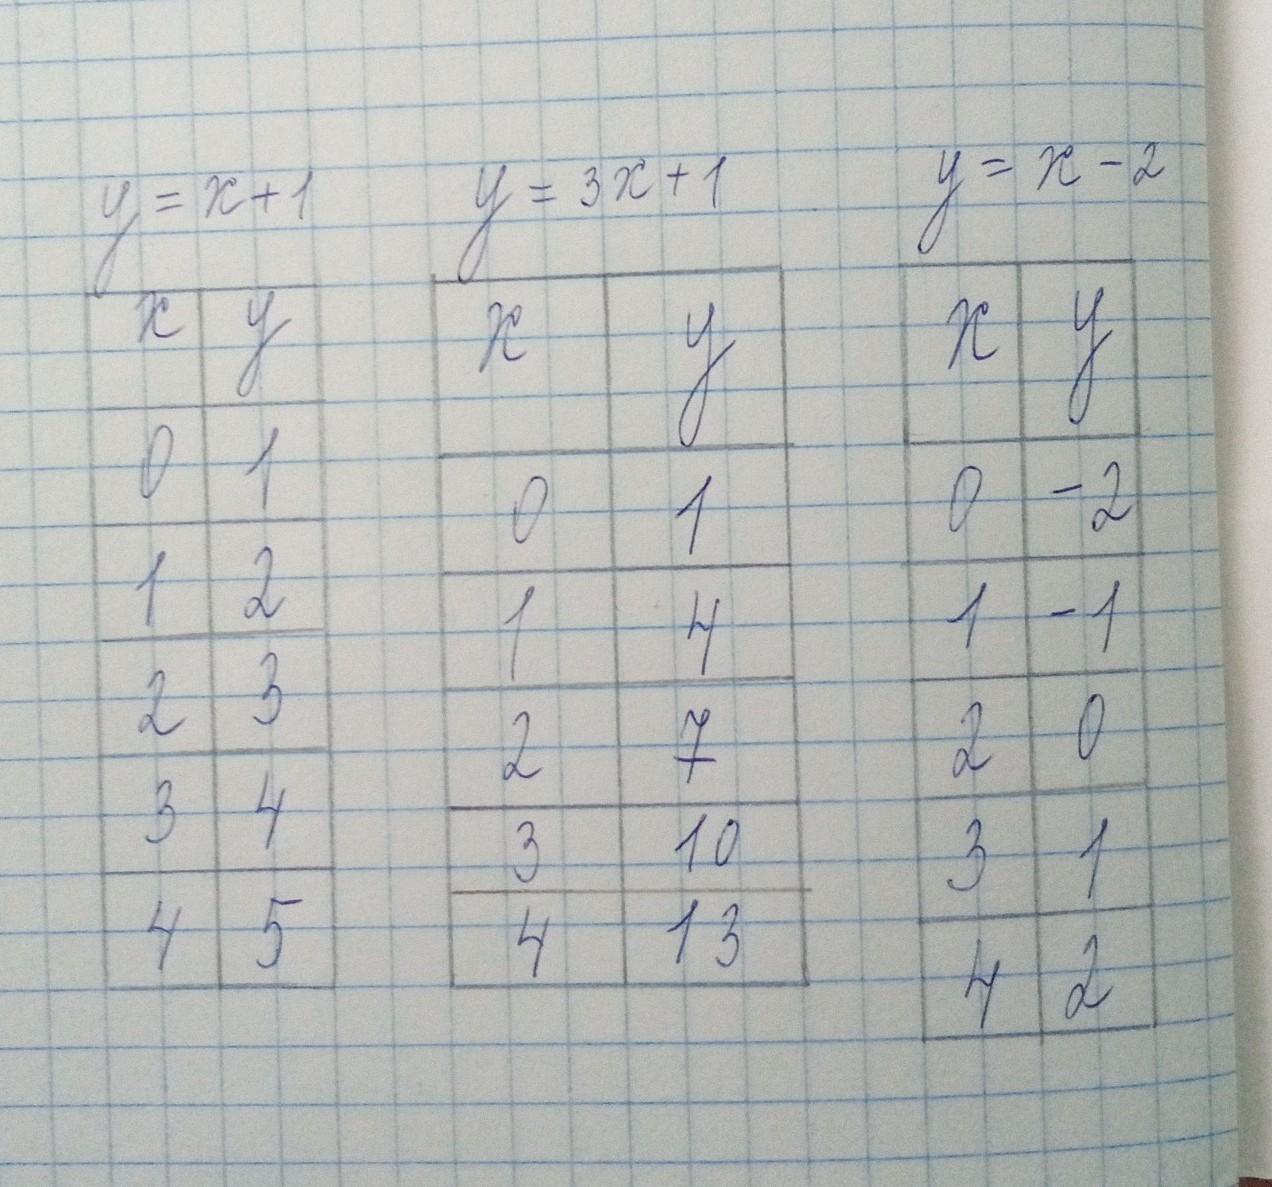 y = x + 1
x y
0 1
1 2
2 3
3 4
4 5
y = 3x + 1
x y
0 1
1 4
2 7
3 10
4 13
y = x - 2
x y
0 -2
1 -1
2 0
3 1
4 2